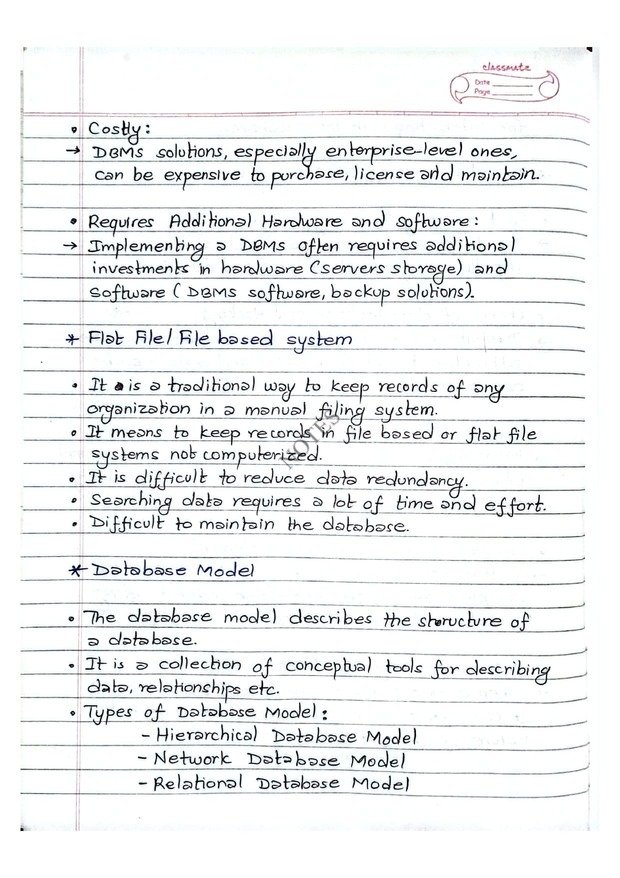 classmate
Date
Page
• Costly:
→ DBMS solutions, especially enterprise-level ones,
can be expensive to purchase, license and maintain.
• Requires Additional Hardware and software:
→ Implementing a DBMS often requires additional
investments in hardware (servers storage) and
software ( DBMS software, backup solutions).
* Flat File/ File based system
• It is a traditional way to keep records of any
organization in a manual filing system.
• It means to keep records in file based or flat file
systems not computerized.
• It is difficult to reduce data redundancy.
• Searching data requires a lot of time and effort.
• Difficult to maintain the database.
NOTES
* Database Model
• The database model describes the structure of
a database.
• It is a collection of conceptual tools for describing
data, relationships etc.
• Types of Database Model:
- Hierarchical Database Model
- Network Database Model
- Relational Database Model